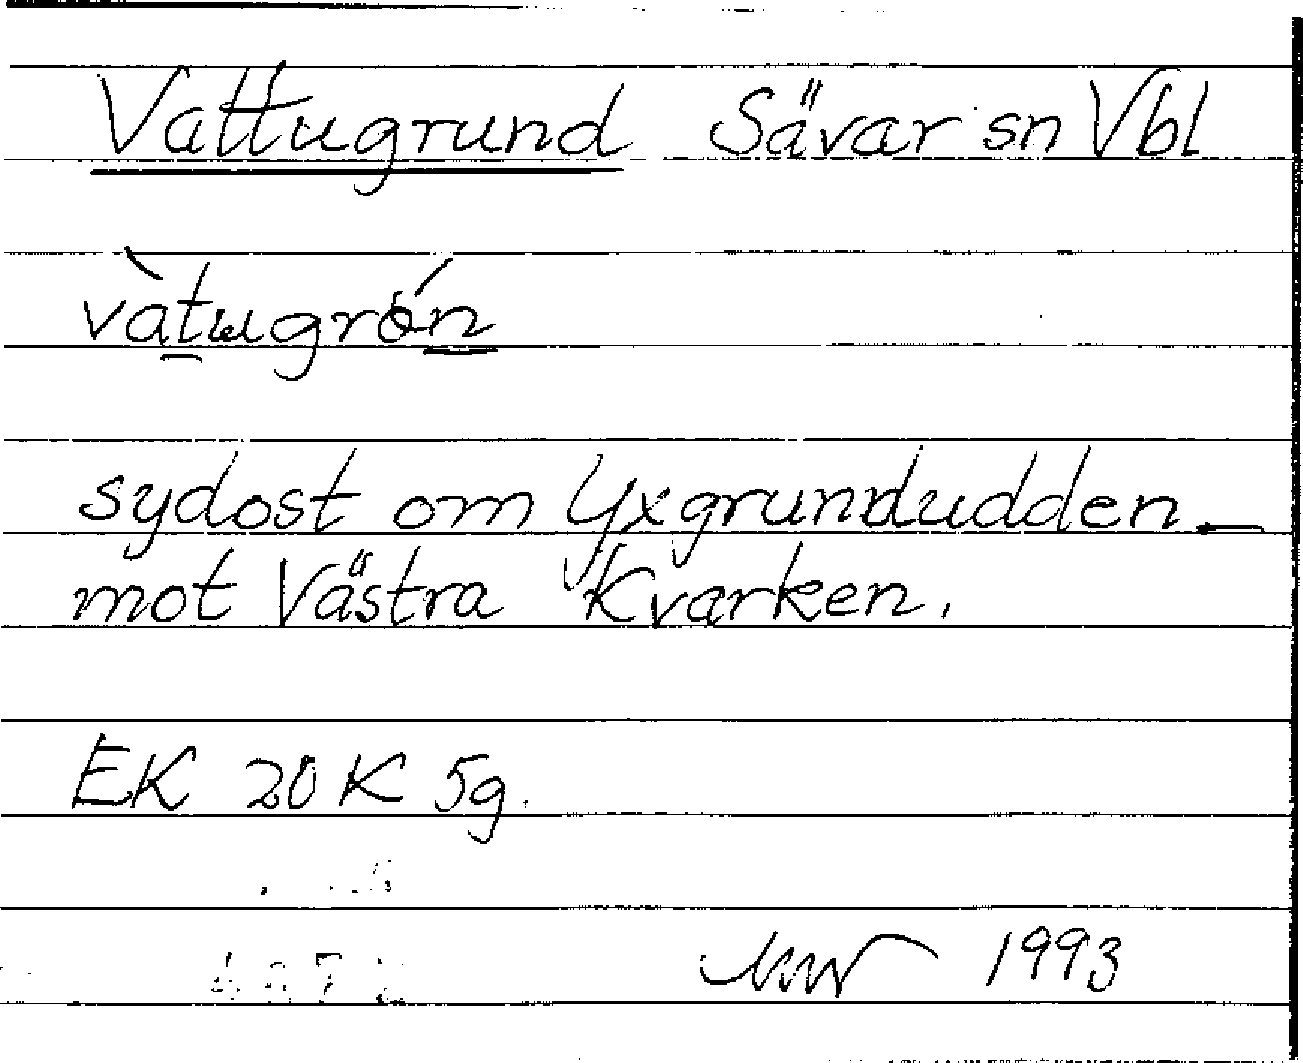 Vattugrund Sävar sn Vbl
vàtugrón
sydost om Yxgrundudden
mot Västra Kvarken.
EK 20K 5g.
1993